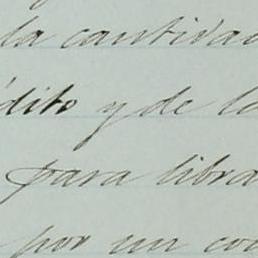 la cantidad
édito y de la
para libra
por un co